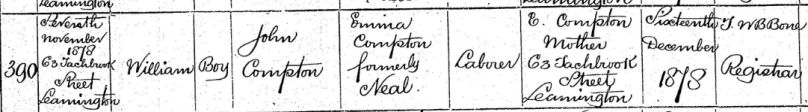 Leamington
390
Seventh
November
1878
63 Tachbrook
Street
Leamington
William
Boy
John
Compton
Emma
Compton
formerly
Neal.
Laborer
E. Compton
Mother
63 Tachbrook
Street
Leamington
Sixteenth
December
1878
WB Bone
Registrar